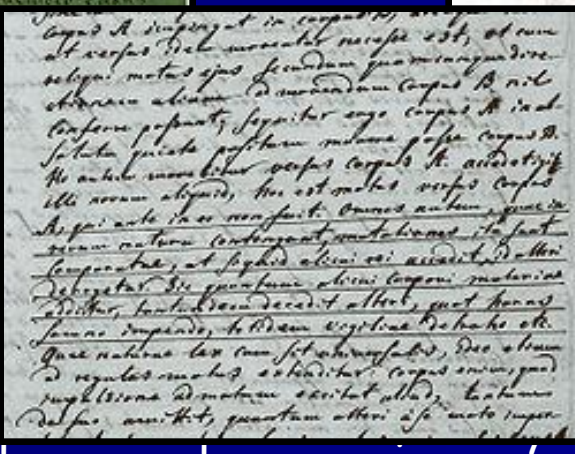 corpus A impingat in corpus B,
ut versus idem moveatur necesse est, et cum
reliqui motus ejus secundum quamcunque dire
ctionem alium ad movendum corpus B nil
conferre possunt, sequitur ergo corpus A in ab
soluta quiete positum movere posse corpus B.
Hoc autem movebitur versus corpus A. accedet igitur
illi novum aliquid, hoc est motus versus corpus
A, qui ante in eo non fuit. Omnes autem, quae in
rerum natura contingunt, mutationes ita sunt
comparatae, ut si quid alicui rei accedit, id alteri
derogetur. Sic quantum alicui corpori materiae
additur, tantundem decedit alteri, quot horas
somno impendo, totidem vigiliae detraho etc.
Quae naturae lex cum sit universalis, ideo etiam
ad regulas motus extenditur: corpus enim, quod
impulsione ad motum excitat aliud, tantum
de suo amittit, quantum alteri a se moto imper